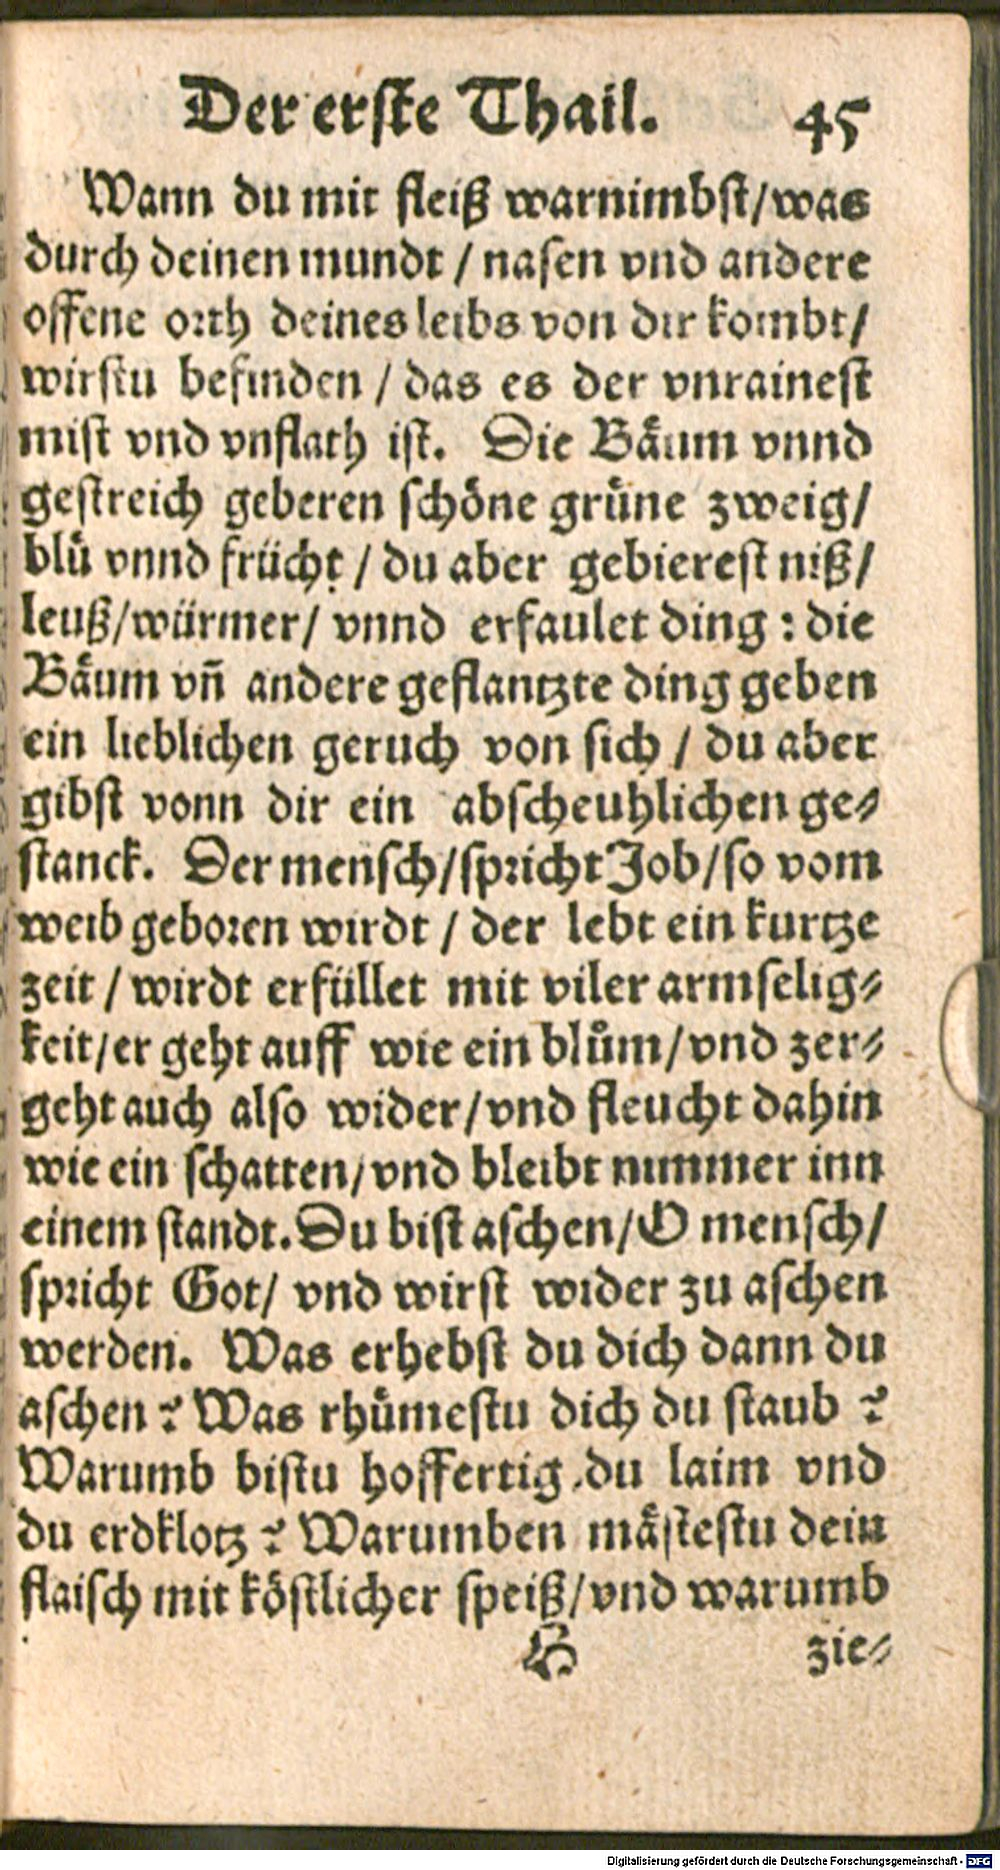 Der erste Thail. 45
Wann du mit fleiß warnimbst/was
durch deinen mundt / nasen vnd andere
offene orth deines leibs von dir kombt/
wirstu befinden / das es der vnrainest
mist vnd vnflath ist. Die Bäum vnnd
gestreich geberen schöne grüne zweig/
blü vnnd frücht / du aber gebierest niß/
leuß/würmer/ vnnd erfaulet ding : die
Bäum vñ andere geflantzte ding geben
ein lieblichen geruch von sich / du aber
gibst vonn dir ein abscheuhlichen ge⸗
stanck. Der mensch/spricht Job/so vom
weib geboren wirdt / der lebt ein kurtze
zeit / wirdt erfüllet mit viler armselig⸗
keit/er geht auff wie ein blům/vnd zer⸗
geht auch also wider/vnd fleucht dahin
wie ein schatten/vnd bleibt nimmer inn
einem standt. Du bist aschen/O mensch/
spricht Got/ vnd wirst wider zu aschen
werden. Was erhebst du dich dann du
aschen ? Was rhümestu dich du staub ?
Warumb bistu hoffertig, du laim vnd
du erdklotz ? Warumben mästestu dein
flaisch mit köstlicher speiß/vnd warumb
H zie⸗
Digitalisierung gefördert durch die Deutsche Forschungsgemeinschaft - DFG